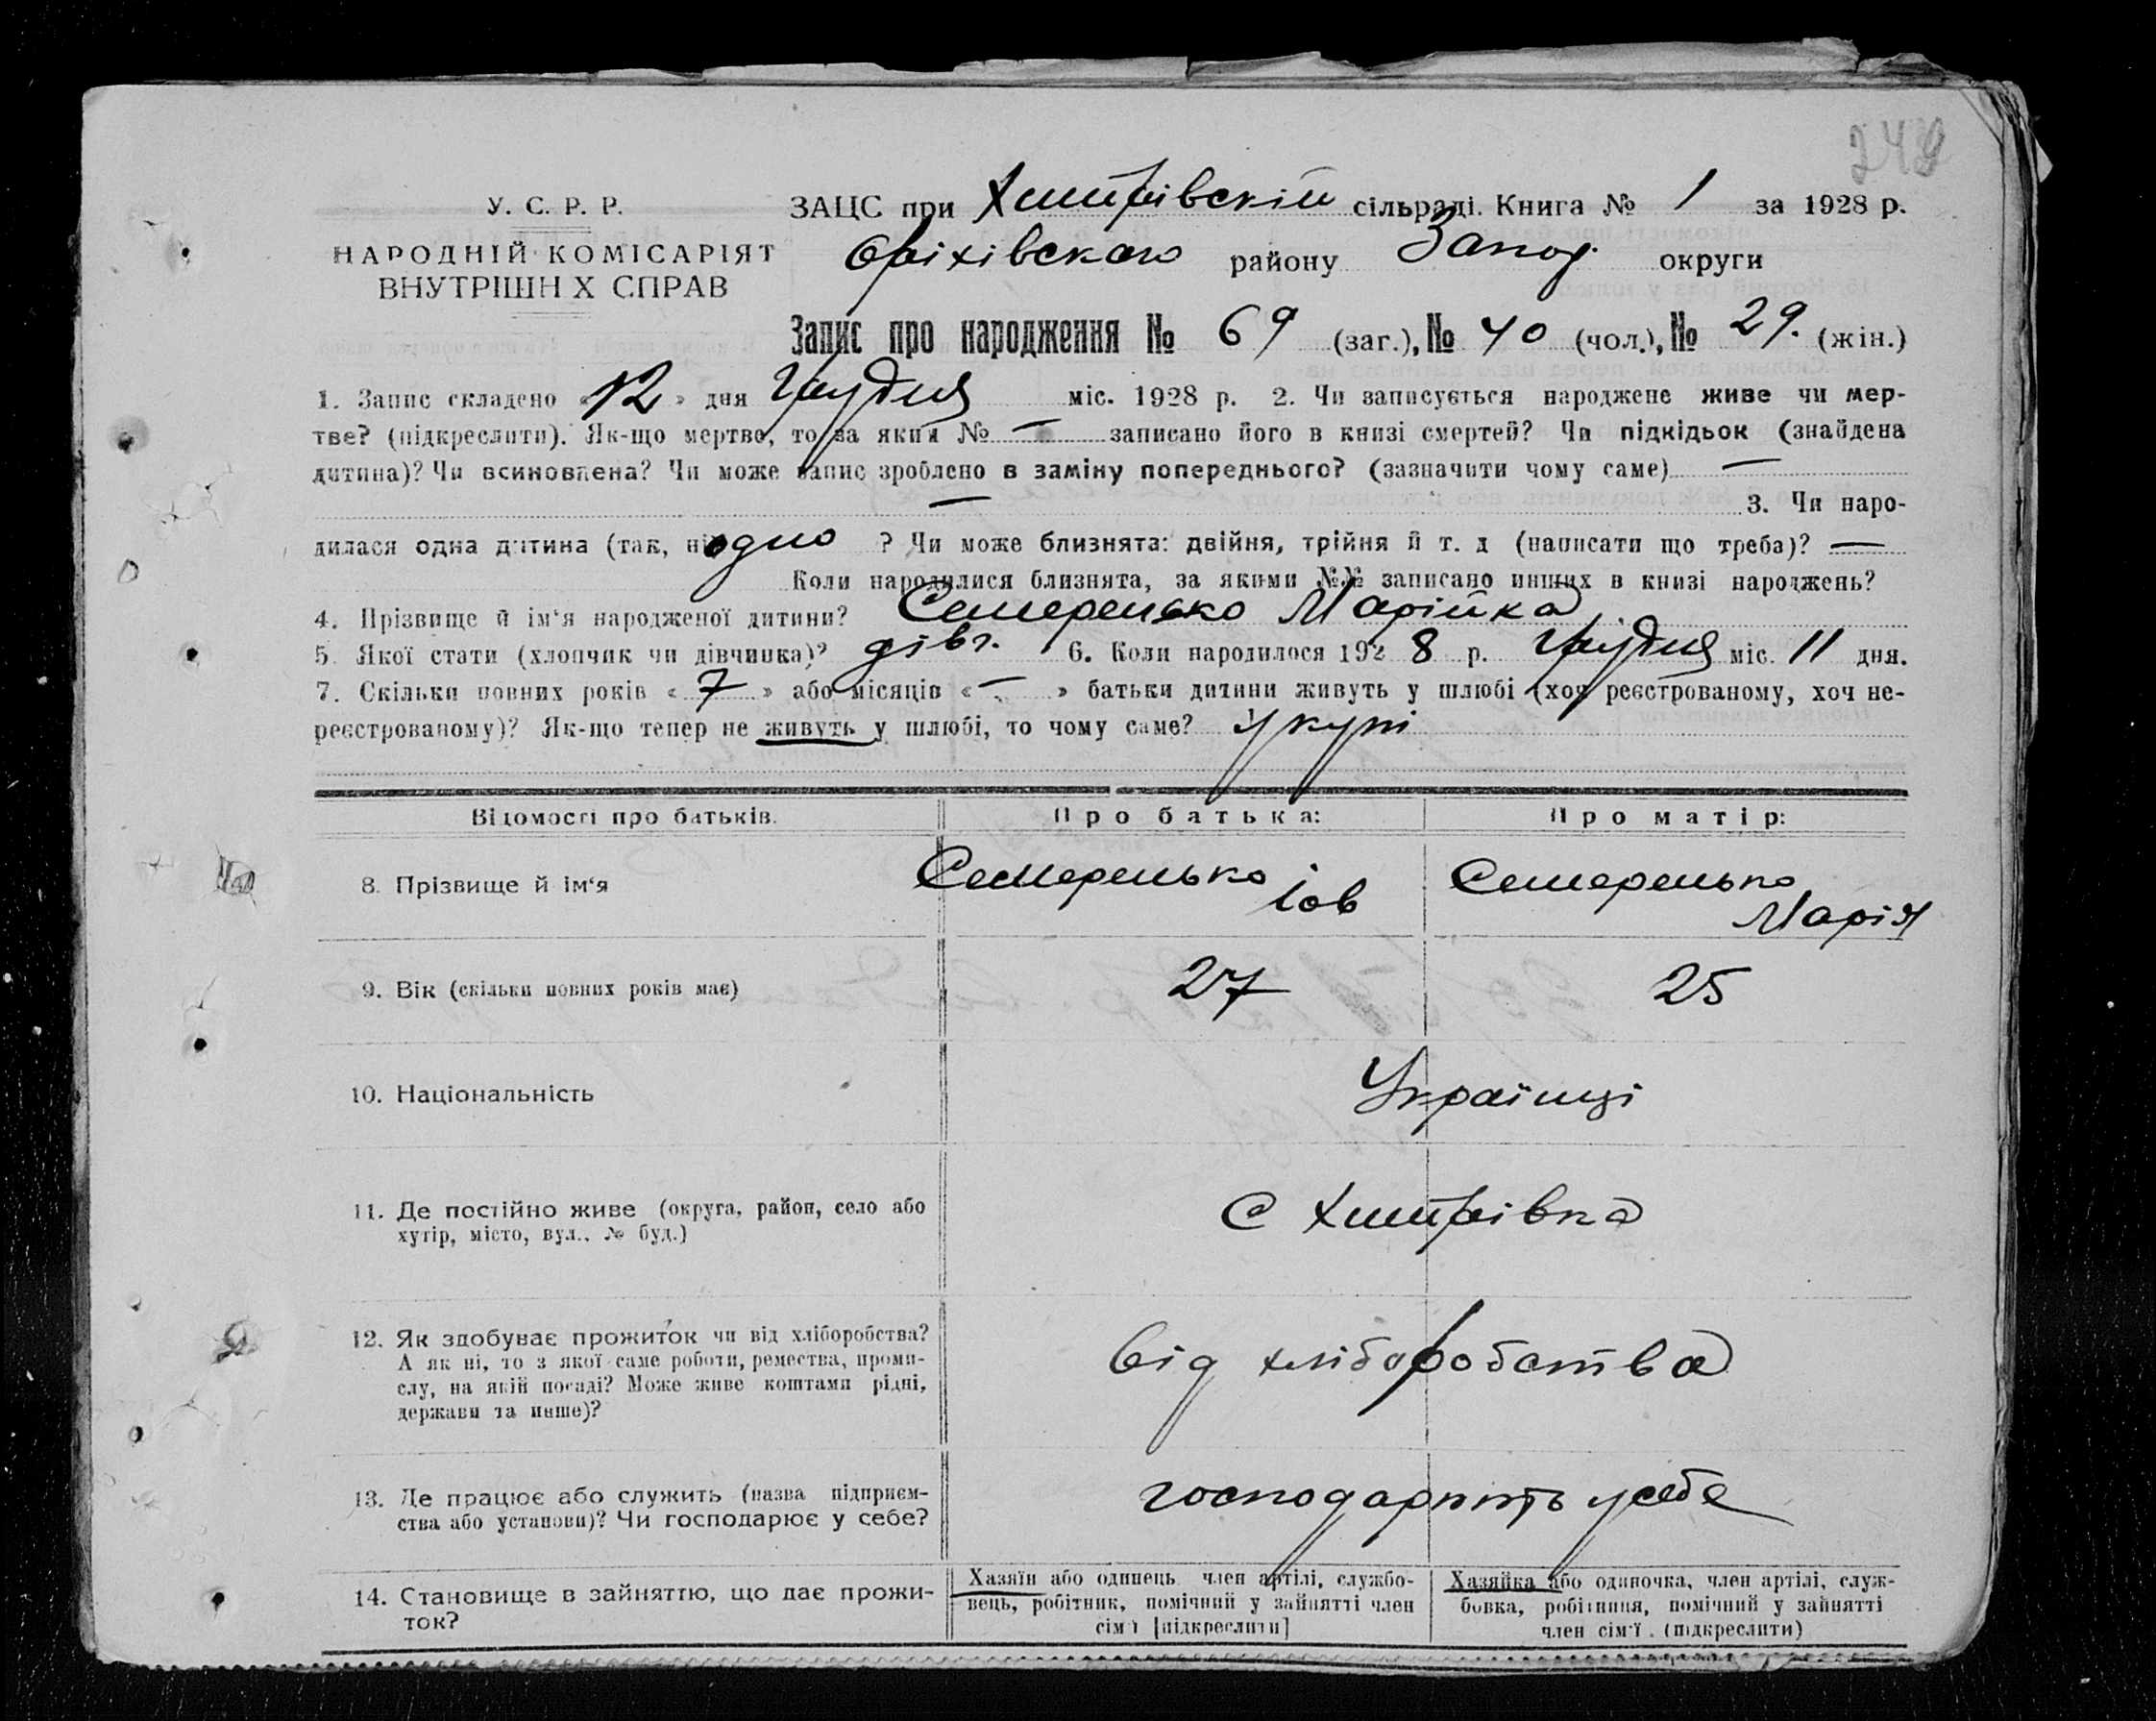 249
У. С. Р. Р.
НАРОДНІЙ КОМІСАРІЯТ
ВНУТРІШН Х СПРАВ
ЗАЦС при Хитрівскій сільраді. Книга № 1 за 1928 р.
Оріхівского району Запор. округи
Запис про народження № 69 (заг.), № 40 (чол.), № 29. (жін.)
1. Запис складено «12» дня Грудня міс. 1928 р. 2. Чи записується народжене живе чи мер-
тве? (підкреслити). Як-що мертве, то за яким № — записано його в книзі смертей? Чи підкідьок (знайдена
дитина)? Чи всиновлена? Чи може запис зроблено в заміну попереднього? (зазначити чому саме) —
— 3. Чи наро-
дилася одна дитина (так, ні) одно ? Чи може близнята: двійня, трійня й т. д (написати що треба)? —
Коли народилися близнята, за якими №№ записано инших в книзі народжень?
4. Прізвище й ім‘я народженої дитини? Семеренько Марійка
5. Якої стати (хлопчик чи дівчинка)? дівч. 6. Коли народилося 1928 р. Грудня міс. 11 дня.
7. Скільки повних років «7» або місяців «—» батьки дитини живуть у шлюбі (хоч реєстрованому, хоч не-
реєстрованому)? Як-що тепер не живуть у шлюбі, то чому саме? Укупі
Відомості про батьків. Про батька: Про матір:
8. Прізвище й ім‘я Семеренько Іов Семеренько Марія
9. Вік (скільки повних років має) 27 25
10. Національність Українці
11. Де постійно живе (округа, район, село або
хутір, місто, вул., № буд.) С Хитрівка
12. Як здобуває прожиток чи від хліборобства?
А як ні, то з якої саме роботи, ремества, проми-
слу, на якій посаді? Може живе коштами рідні,
держави та инше)? від хліборобства
13. Де працює або служить (назва підприєм-
ства або установи)? Чи господарює у себе? господарюють у себе
14. Становище в зайняттю, що дає прожи-
ток?
Хазяїн або одинець, член артілі, службо-
вець, робітник, помічний у зайнятті член
сім‘ї [підкреслити]
Хазяйка або одиночка, член артілі, служ-
бовка, робітниця, помічний у зайнятті
член сім‘ї. (підкреслити)